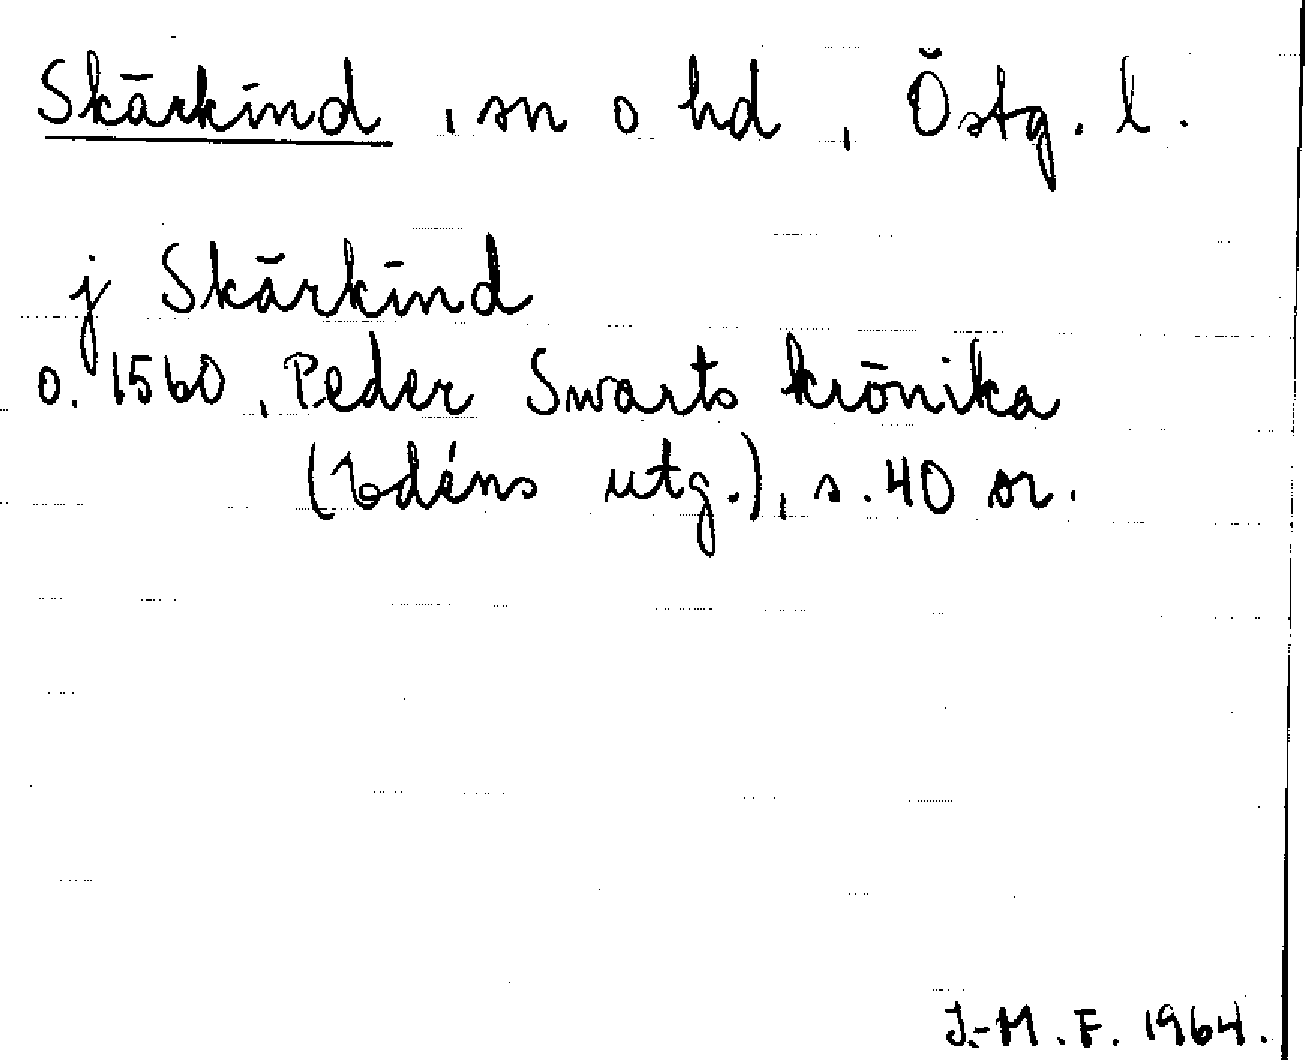 Skärkind, sn o hd, Östg. l.
j Skärkind
o. 1560, Peder Swarts krönika
(Edéns utg.), s. 40 or.
J.-M. F. 1964.